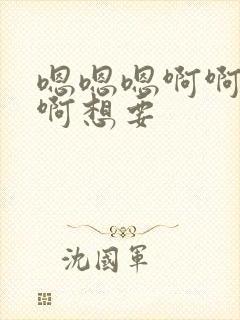 嗯嗯嗯啊啊
啊想要
沈國軍